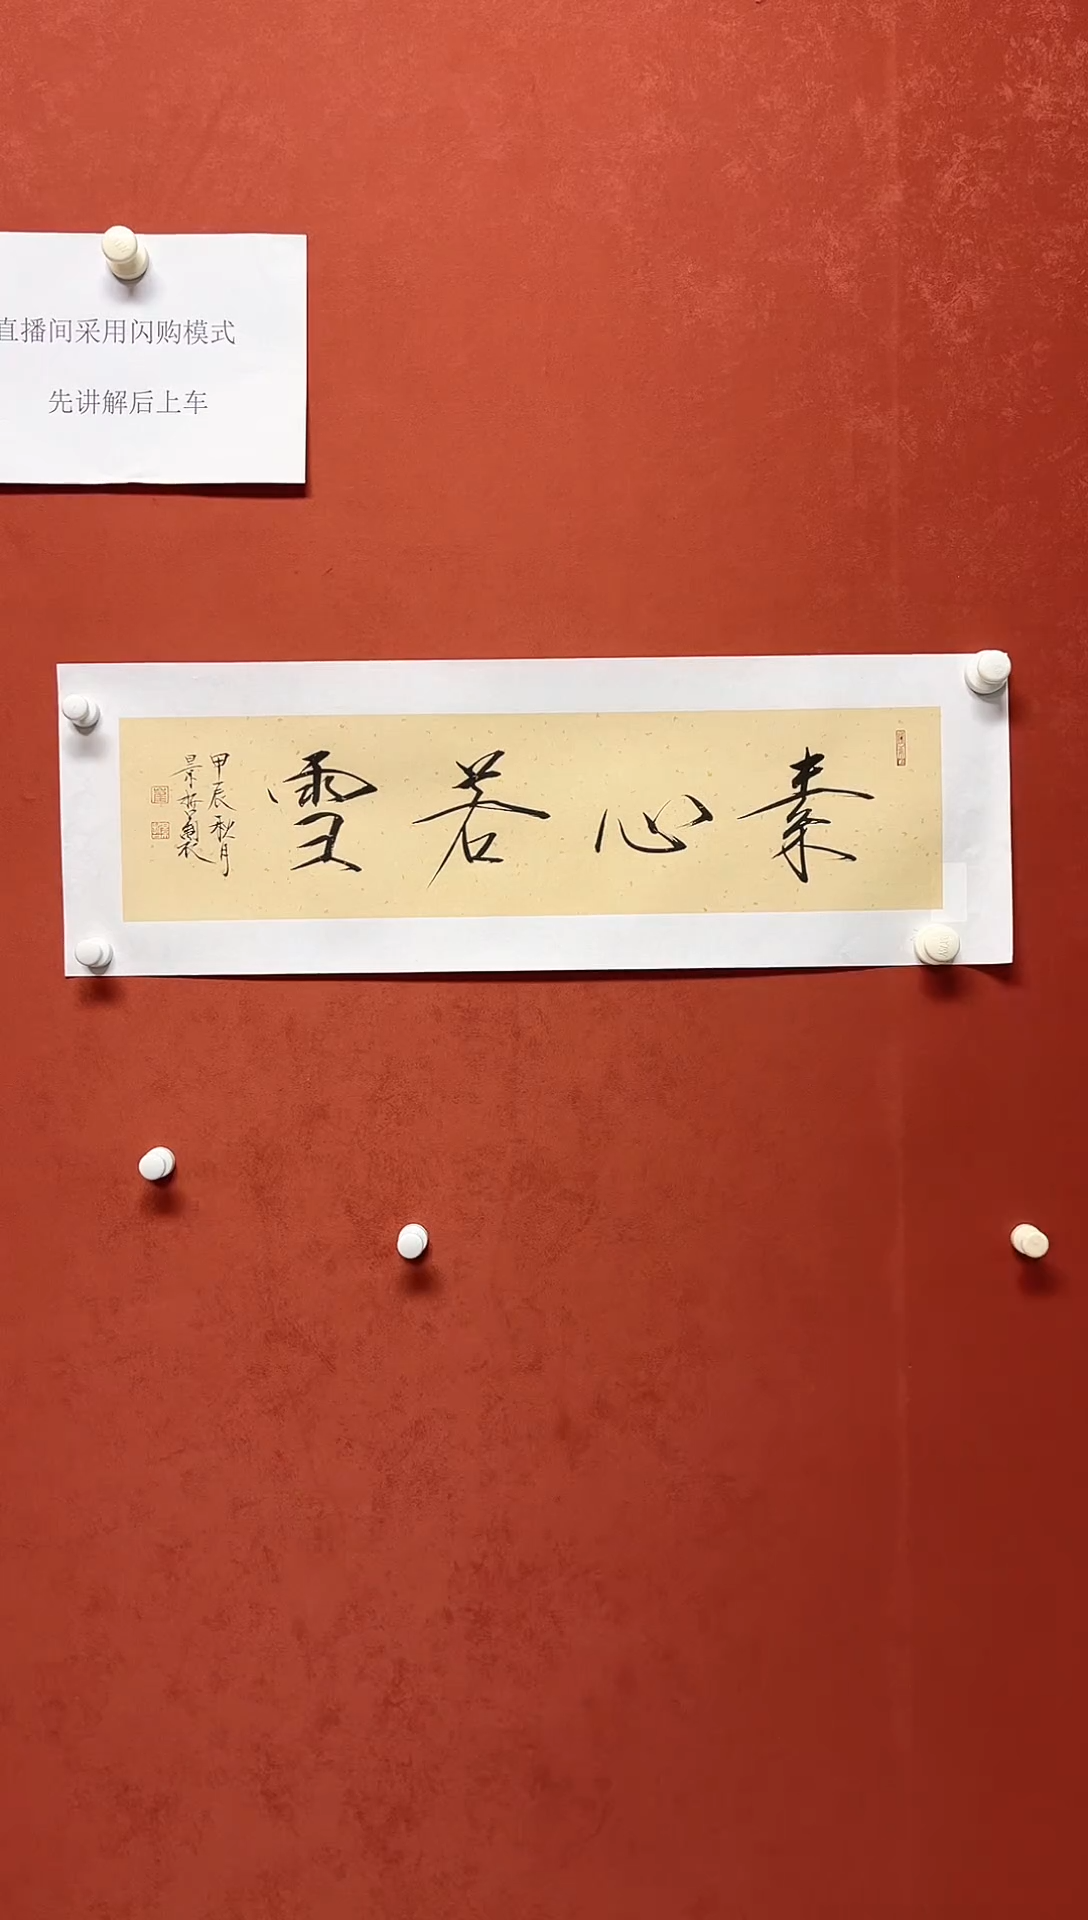 直播间采用闪购模式
先讲解后上车
素心若雪
甲辰秋月